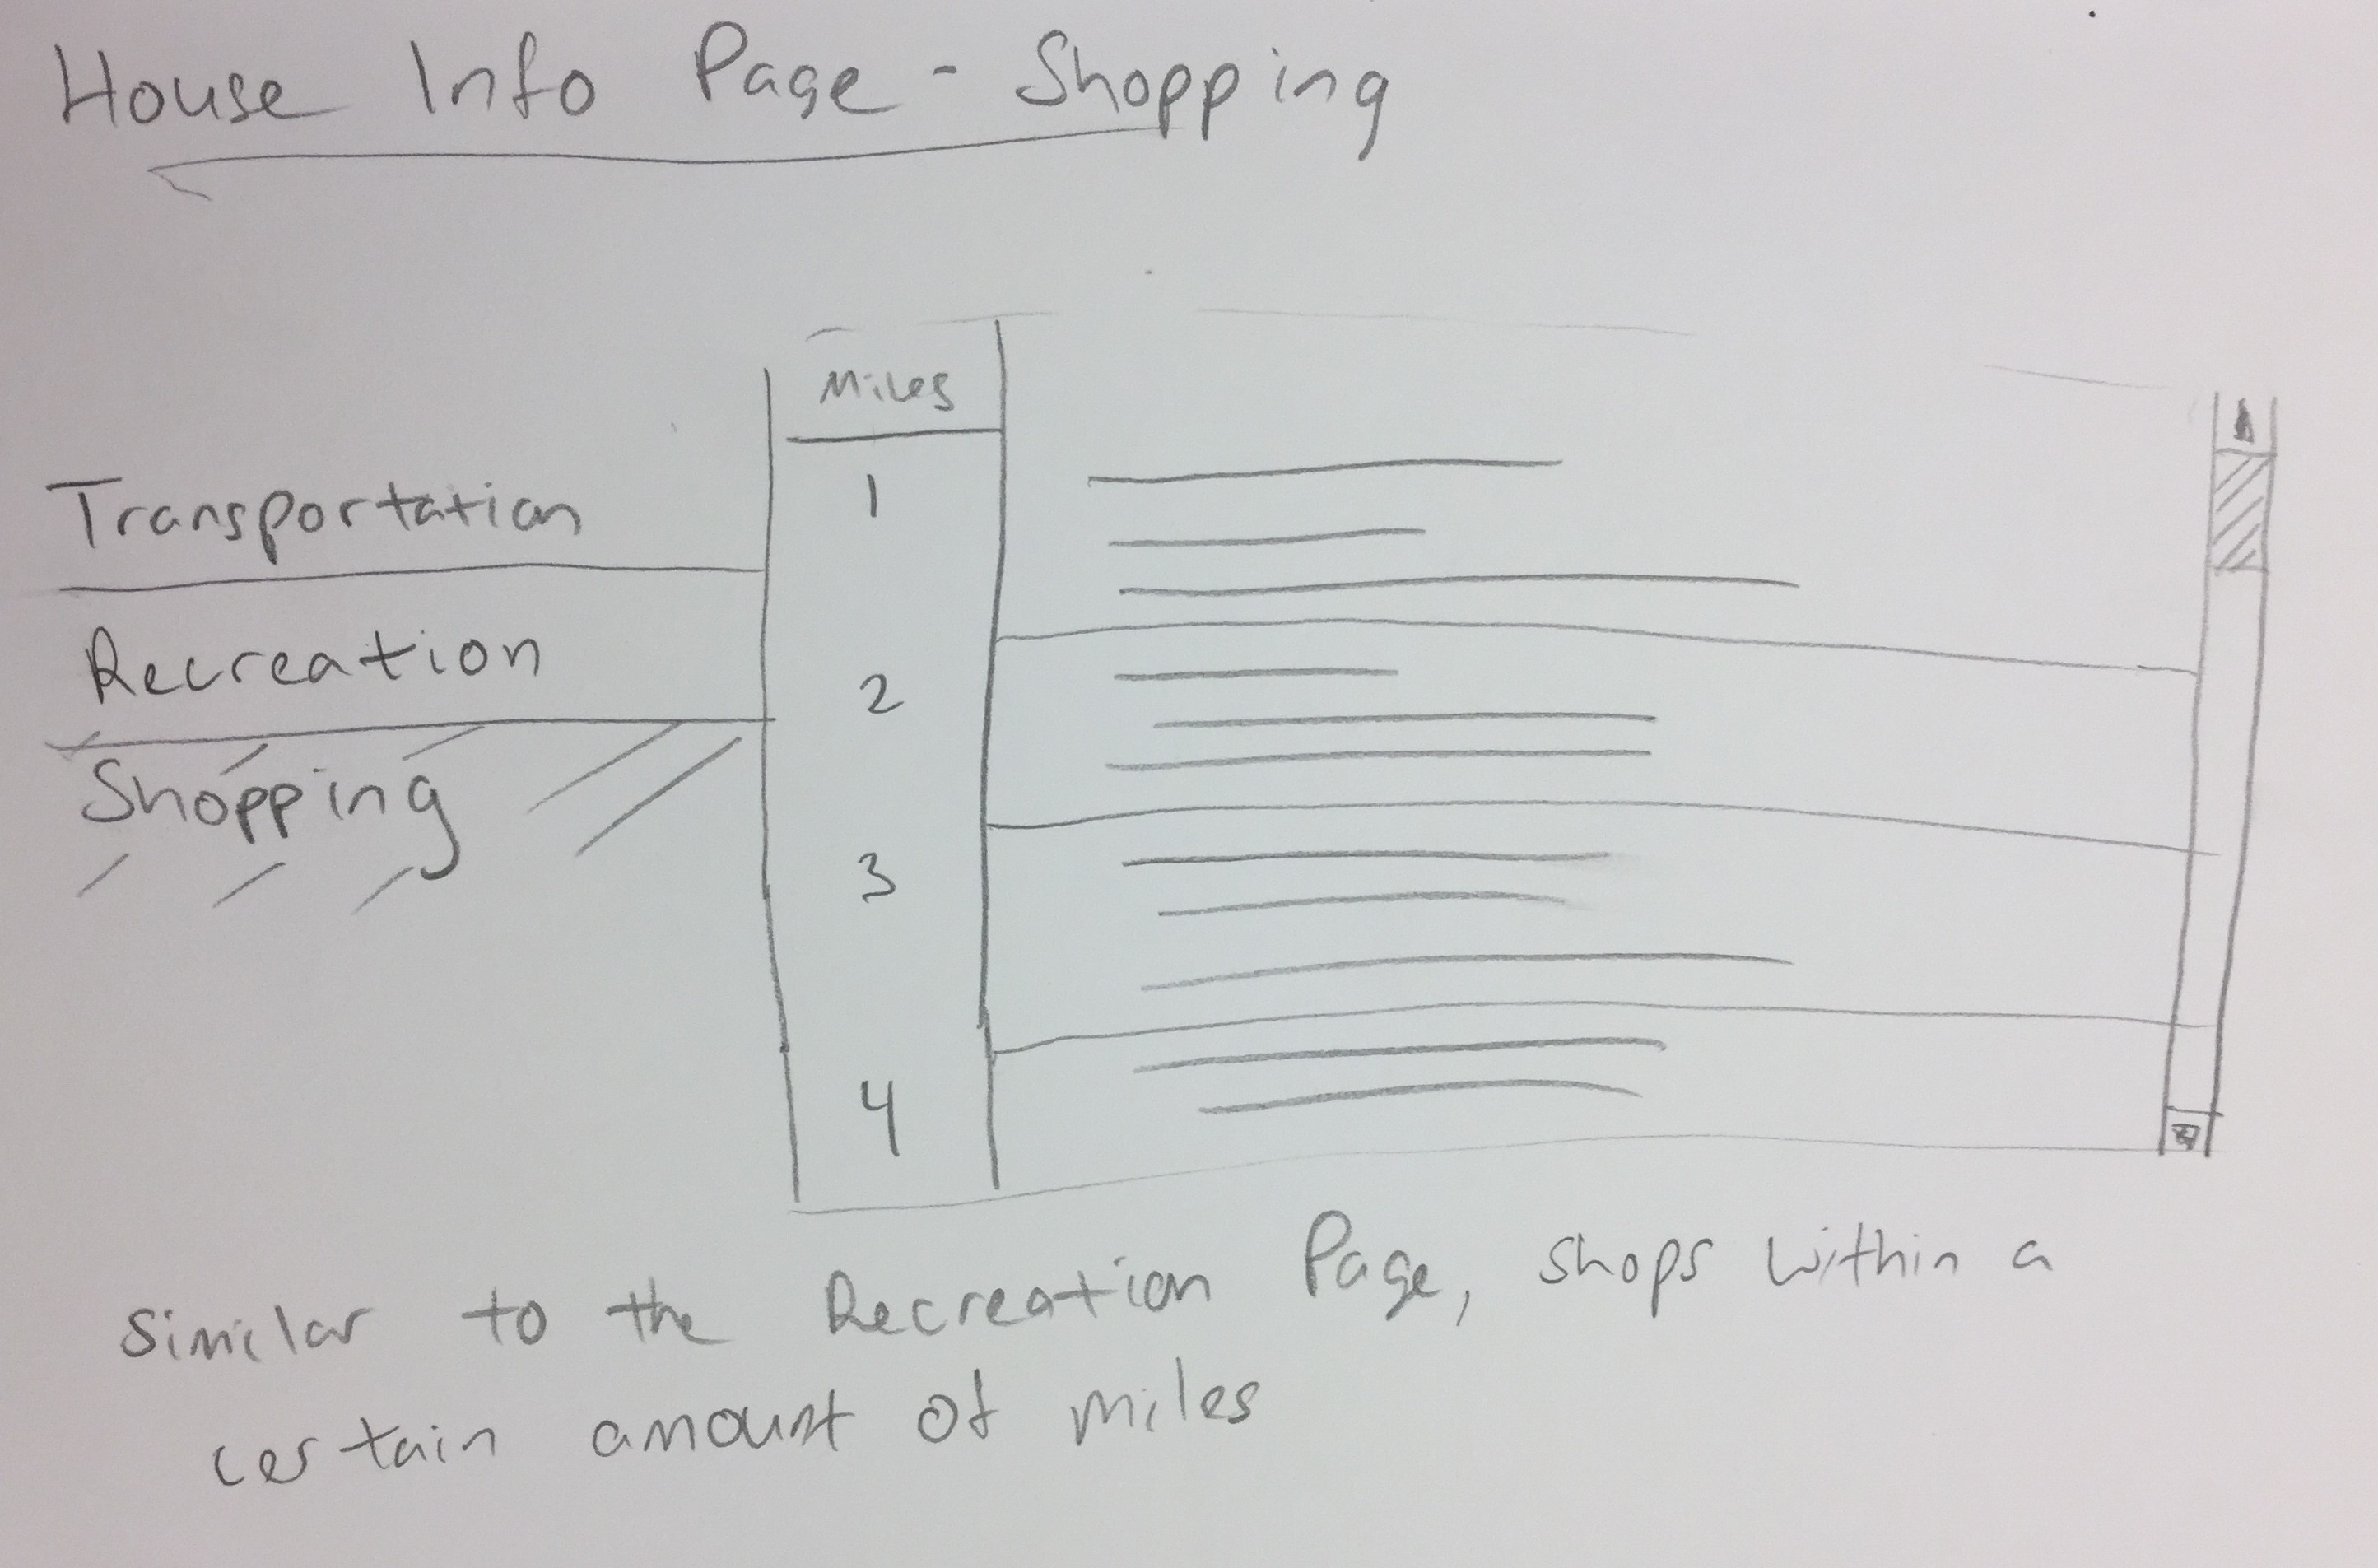 House Info Page - Shopping
Miles
1
Transportation
Recreation
2
Shopping
3
4
Similar to the Recreation Page, shops within a
certain amount of miles